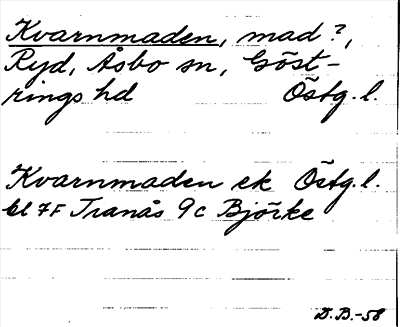 Kvarnmaden, mad?,
Ryd, Åsbo sn, Göst-
rings hd Östg. l.
Kvarnmaden ek Östg. l.
bl 7F Tranås 9c Björke
D. B.-58